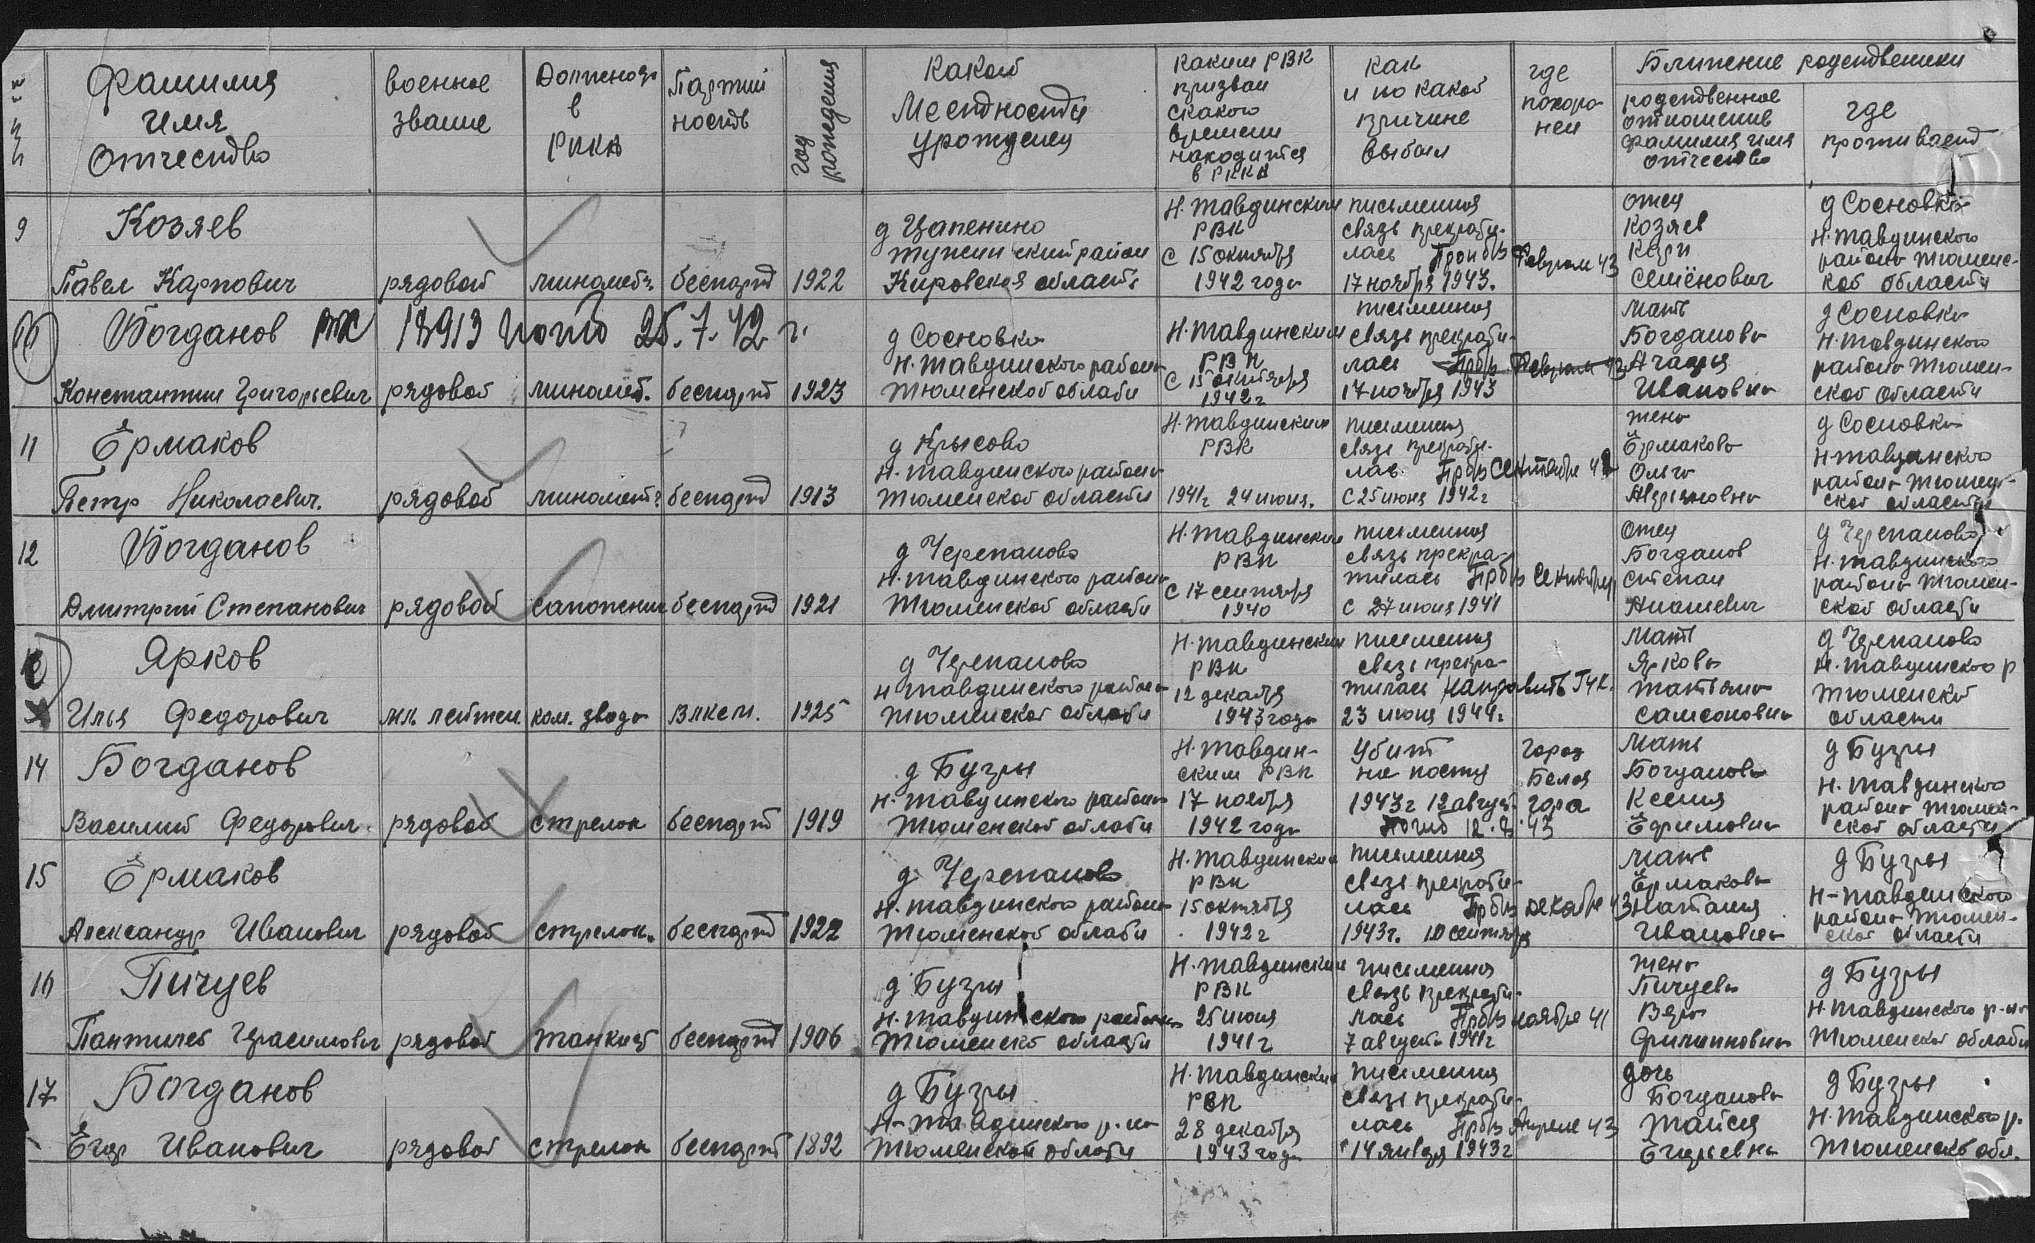 Фамилия
Имя
Отчество
военное
звание
Должность
в
РККА
Партий
ность
год
рождения
Какой
Местности
урожденец
Каким РВК
призван
с какого
времени
находится
в РККА
как
и по какой
причине
выбыл
где
похоро-
нен
Ближние родственники
родственное
отношение
фамилия имя
отчество
где
проживает
9
Козяев
Павел Карпович
рядовой
беспарт
1922
д Цапенино
тужинский район
Кировская область
Н. Тавдинским
РВК
С 15 октября
1942 года
письменная
связь прекрати-
лась Проп б/з феврале 43
17 ноября 1943.
отец
Козяев
Карп
Семёнович
д Сосновка
Н. Тавдинского
района Тюменс-
кой области
Богданов 18913 погиб 25.7.42 г.
Константин Григорьевич
рядовой
миномет.
беспарт
1923
д Сосновка
Н. Тавдинского района
Тюменской области
Н. Тавдинским
РВК
С 15 октября
1942 г
письменная
связь прекрати-
лась Пр б/з феврале 43
17 ноября 1943
мать
Богданова
Агафья
Ивановна
д Сосновка
Н. Тавдинского
района Тюмен-
ской области
11
Ермаков
Петр Николаевич.
рядовой
беспарт
1913
д Крысово
Н. Тавдинского района
Тюменской области
Н. Тавдинским
РВК
1941г 24 июня.
письменная
связь прекрати-
лась Пр б/з сентябре 42
С 25 июня 1942 г
жена
Ермакова
Ольга
д Сосновка
Н Тавдинского
района Тюмен-
ской области
12
Богданов
Дмитрий Степанович
рядовой
сапожник
беспарт
1921
д Черепаново
Н. Тавдинского района
Тюменской области
Н. Тавдинским
РВК
С 17 сентября
1940
письменная
связь прекра-
тилась Пр б/з сентябре
С 27 июня 1941
отец
Богданов
Степан
д Черепаново
Н. Тавдинского
района Тюмен-
ской области
Ярков
Илья Федорович
мл лейтен
ком. взвода
Влксм.
1925
д Черепаново
Н Тавдинского района
Тюменской области
Н. Тавдинским
РВК
12 декабря
1943 года
письменная
связь прекра-
тилась направить ГУК.
23 июня 1944г
мать
Яркова
Татьяна
Самсоновна
д Черепаново
Н. Тавдинского р
Тюменской
области
14
Богданов
Василий Федорович
рядовой
стрелок
беспарт
1919
д Бузры
Н. Тавдинского района
Тюменской области
Н. Тавдин-
ским РВК
17 ноября
1942 года
Убит
на посту
1943г 12 август.
погиб 12.8.43
город
Белая
гора
мать
Богданова
Ксения
Ефимовна
д Бузры
Н. Тавдинского
района Тюмен-
ской области
15
Ермаков
Александр Иванович
рядовой
стрелок.
беспарт
1922
д. Черепаново
Н. Тавдинского района
Тюменской области
Н. Тавдинским
РВК
15 октября
1942г
письменная
связь прекрати-
лась Пр б/з декабре 43
1943г. 10 сентября
мать
Ермакова
Наталия
Ивановна
д Бузры
Н-Тавдинского
района Тюмен-
ской области
16
Пичуев
Пантилей Герасимович
рядовой
танкист
беспарт
1906
д Бузры
Н. Тавдинского района
Тюменской области
Н. Тавдинским
РВК
25 июня
1941г
письменная
связь прекрати-
лась Пр б/з ноябре 41
7 августа 1941г
жена
Пичуева
Вера
Филипповна
д Бузры
Н. Тавдинского р-на
Тюменской области
17
Богданов
Егор Иванович
рядовой
стрелок
беспарт
1892
д Бузры
Н-Тавдинского р-на
Тюменской области
Н. Тавдинским
РВК
28 декабря
1943 года
письменная
связь прекрати-
лась Пр б/з апреле 43
14 января 1943г
дочь
Богданова
Тайсия
Егорьевна
д Бузры
Н. Тавдинского р.
Тюменской обл.